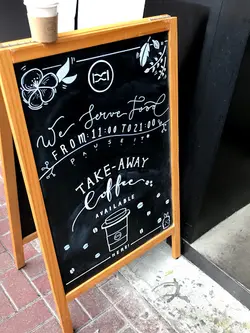 We Serve Food
FROM:11:00 TO21:00
PAUSE
TAKE-AWAY
Coffee
AVAILABLE
HERE!